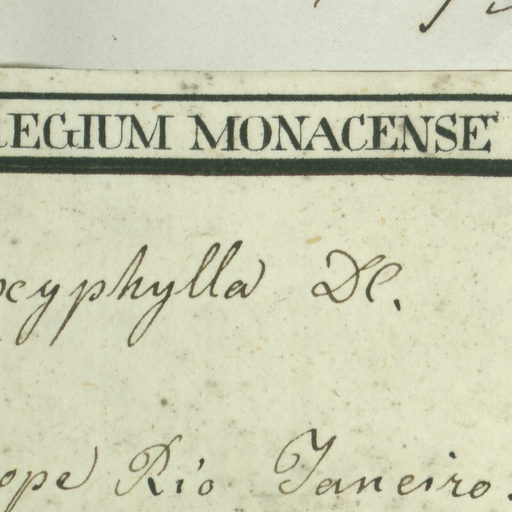 REGIUM MONACENSE
oxyphylla DC.
rope Rio Janeiro.